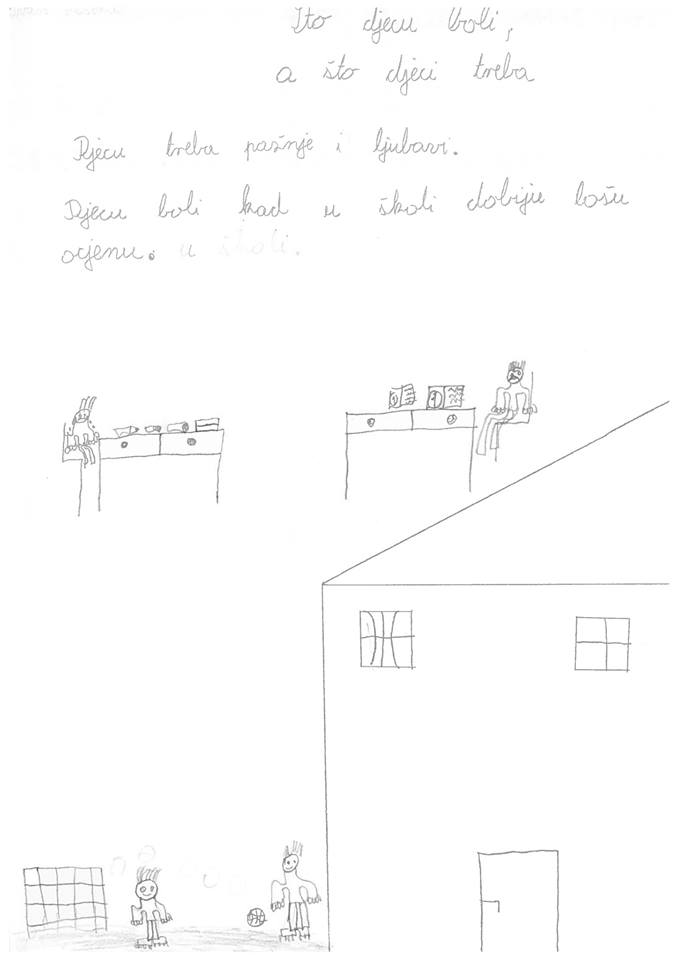 Što djecu boli,
a što djeci treba
Djecu treba pažnje i ljubavi.
Djecu boli kad u školi dobiju lošu
ocjenu. u školi.